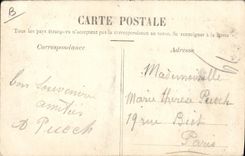 B
CARTE POSTALE
Tous les pays étrangers n'acceptent pas la correspondance au verso. Se renseigner à la Poste
Correspondance
Adresse
Bon Souvenir
amitiés
Puech
Mademoiselle
Marie Thérèse Puech
19 rue
Paris